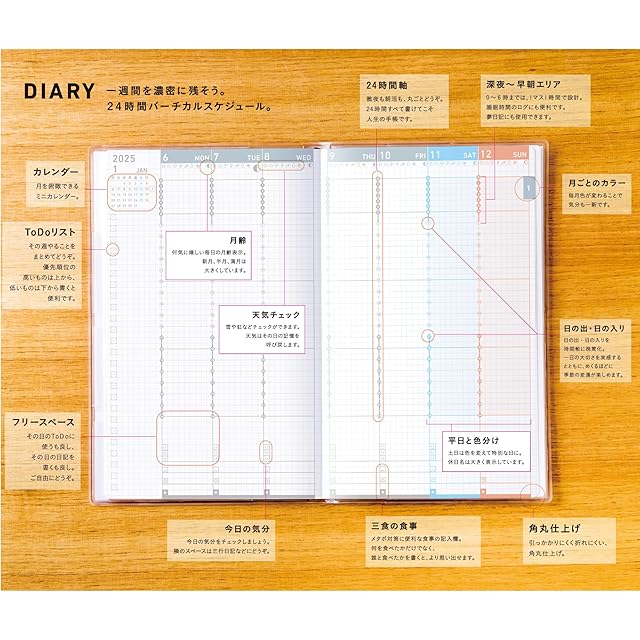 DIARY
一週間を濃密に残そう。
24時間バーチカルスケジュール。
24時間軸
徹夜も朝活も、丸ごとどうぞ。
24時間すべて書けてこそ
人生の手帳です。
深夜〜早朝エリア
0〜6時までは、1マス1時間で設計。
睡眠時間のログにも便利です。
夢日記にも使用できます。
カレンダー
月を俯瞰できる
ミニカレンダー。
2025
1 JAN
6 MON
7 TUE
8 WED
9 THU
10 FRI
11 SAT
12 SUN
1
月ごとのカラー
毎月色が変わることで
気分も一新です。
ToDoリスト
その週やることを
まとめてどうぞ。
優先順位の
高いものは上から、
低いものは下から書くと
便利です。
月齢
何気に嬉しい毎日の月齢表示。
新月、半月、満月は
大きくしています。
天気チェック
雪や虹などチェックができます。
天気はその日の記憶を
呼び戻します。
日の出・日の入り
日の出・日の入りを
時間軸に視覚化。
一日の大切さを実感すると
ともに、めくるほどに
季節の変遷が楽しめます。
フリースペース
その日のToDoに
使うも良し、
その日の日記を
書くも良し。
ご自由にどうぞ。
平日と色分け
土日は色を変えて特別な日に。
休日名は大きく表示しています。
今日の気分
今日の気分をチェックしましょう。
隣のスペースは三行日記などにどうぞ。
三食の食事
メタボ対策に便利な食事の記入欄。
何を食べたかだけでなく、
誰と食べたかを書くと、より思い出せます。
角丸仕上げ
引っかかりにくく折れにくい、
角丸仕上げ。